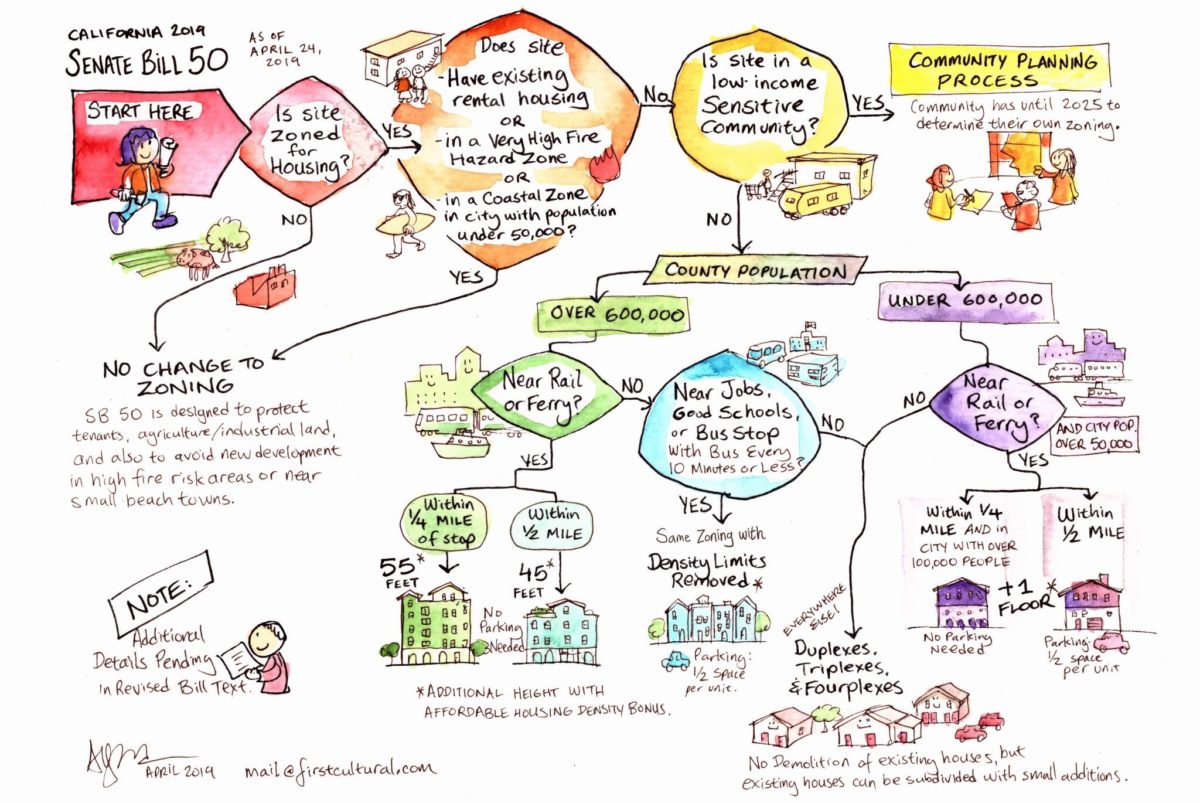 CALIFORNIA 2019
SENATE BILL 50
AS OF
APRIL 24,
2019
START HERE
Is site
zoned
for
Housing?
YES
NO
Does site
- Have existing
rental housing
OR
- in a Very High Fire
Hazard Zone
OR
- in a Coastal Zone
in city with population
under 50,000?
No
YES
Is site in a
low-income
Sensitive
Community?
YES
NO
COMMUNITY PLANNING
PROCESS
Community has until 2025 to
determine their own zoning.
NO CHANGE TO
ZONING
SB 50 is designed to protect
tenants, agriculture/industrial land,
and also to avoid new development
in high fire risk areas or near
small beach towns.
COUNTY POPULATION
OVER 600,000
UNDER 600,000
Near Rail
or Ferry?
NO
YES
Near Jobs,
Good Schools,
or Bus Stop
with Bus Every
10 Minutes or Less?
NO
YES
Near
Rail or
Ferry?
NO
AND CITY POP.
OVER 50,000
YES
Within
1/4 MILE
of stop
Within
1/2 MILE
55*
FEET
45*
FEET
No
Parking
Needed
*ADDITIONAL HEIGHT WITH
AFFORDABLE HOUSING DENSITY BONUS.
Same Zoning with
Density Limits
Removed*
Parking:
1/2 space
per unit.
EVERYWHERE
ELSE!
Duplexes,
Triplexes,
& Fourplexes
No Demolition of existing houses, but
existing houses can be subdivided with small additions.
Within 1/4
MILE AND in
CITY WITH OVER
100,000 PEOPLE
Within
1/2 MILE
+1
FLOOR*
No Parking
Needed
Parking:
1/2 space
per unit
NOTE:
Additional
Details Pending
in Revised Bill Text.
APRIL 2019
mail@firstcultural.com